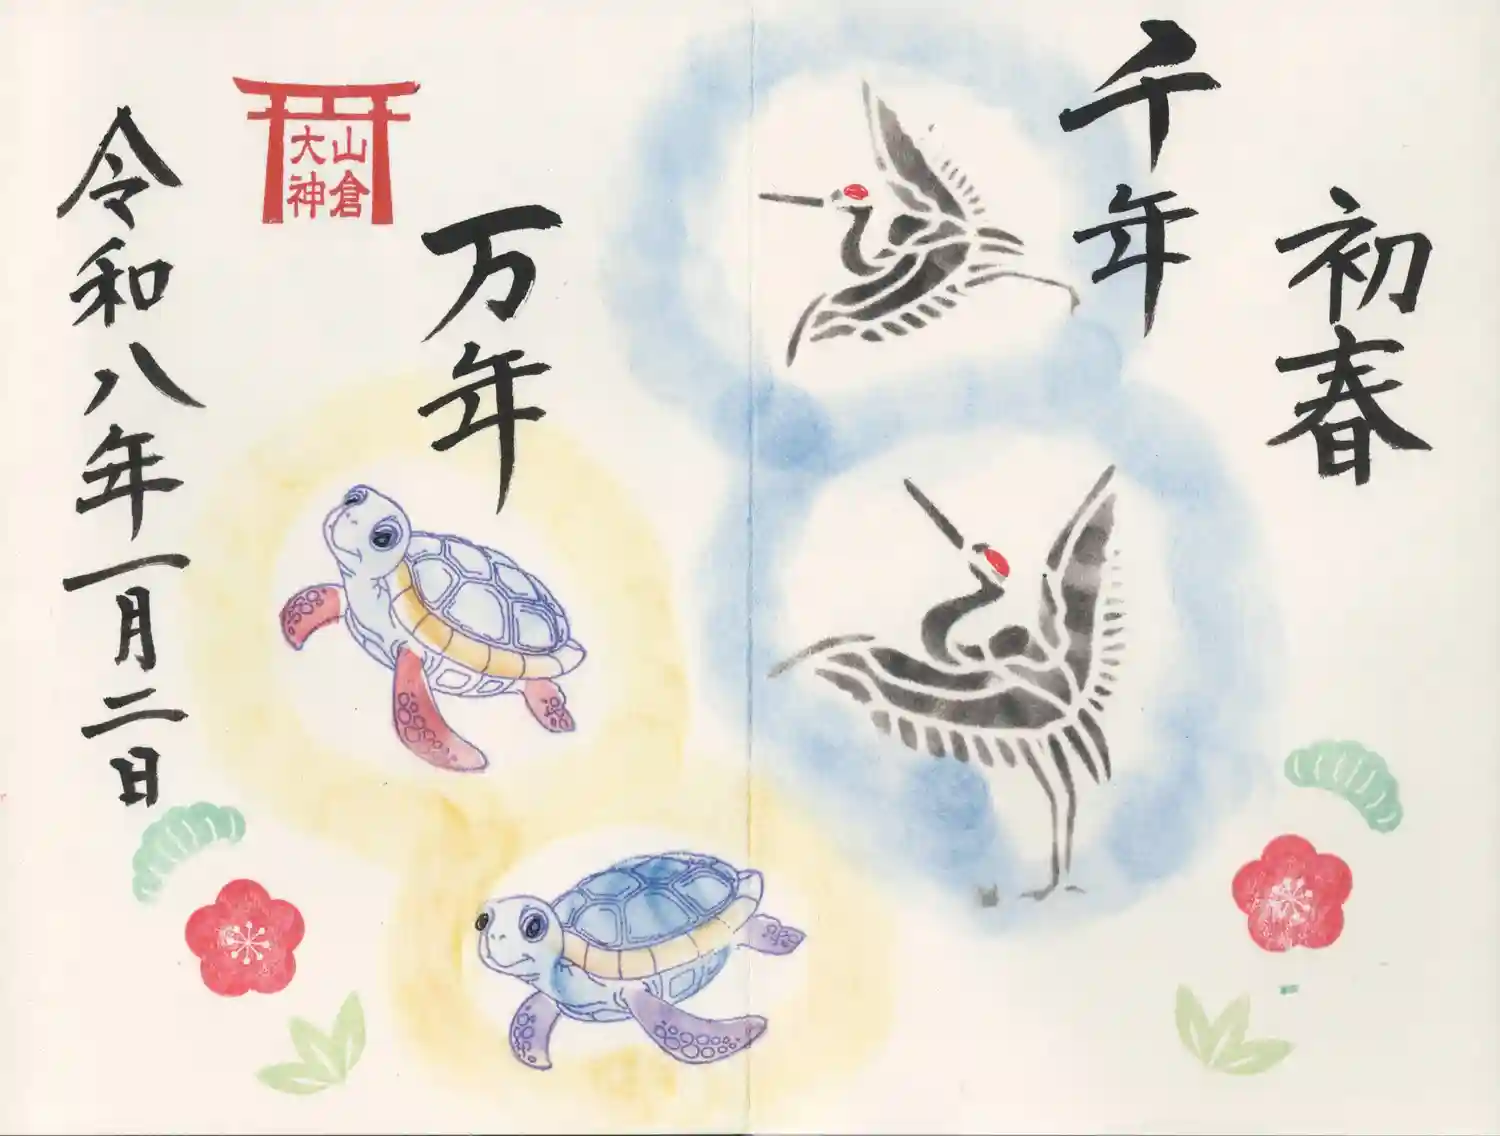 初春
千年
万年
山倉
大神
令和八年一月二日